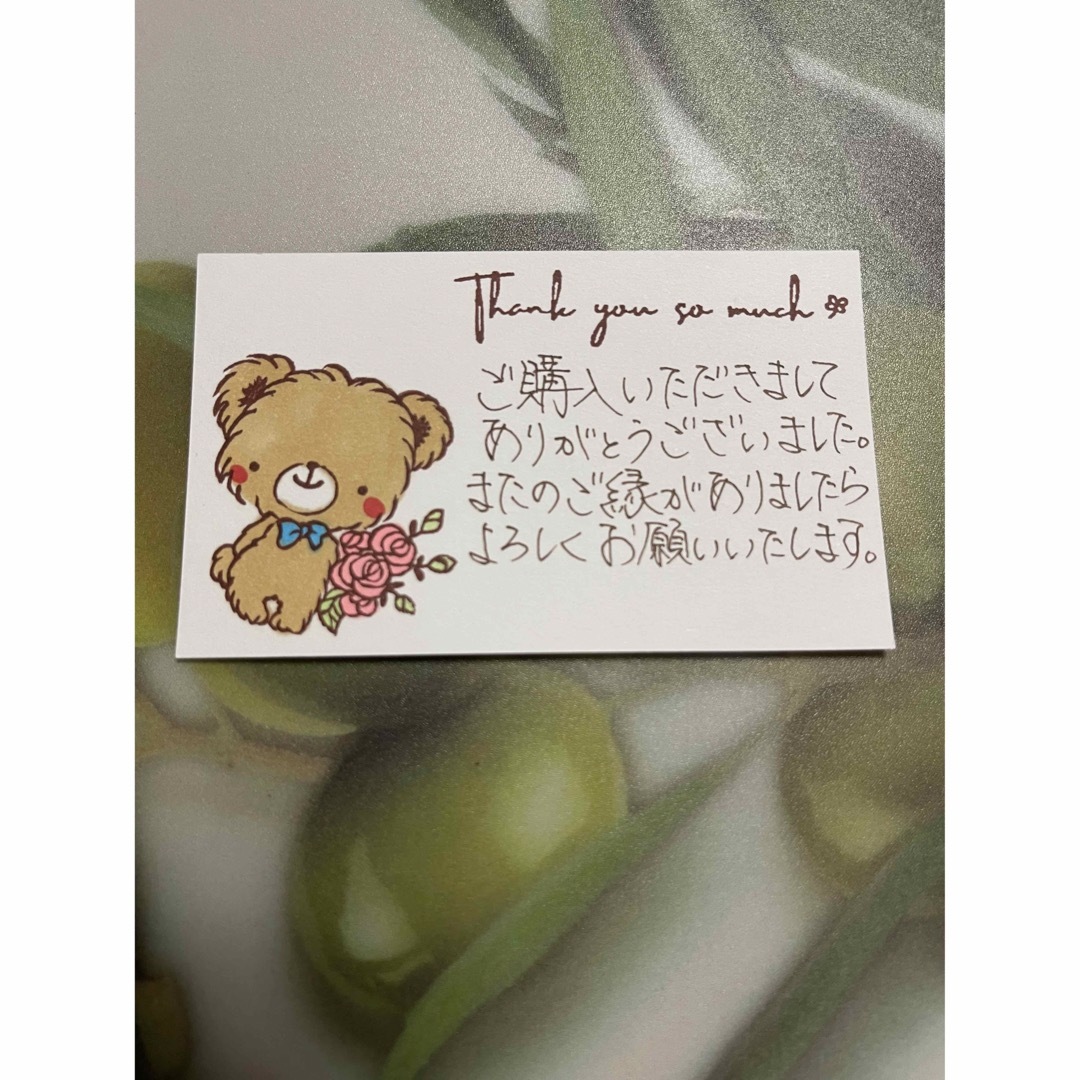 Thank you so much
ご購入いただきまして
ありがとうございました。
またのご縁がありましたら
よろしくお願いいたします。